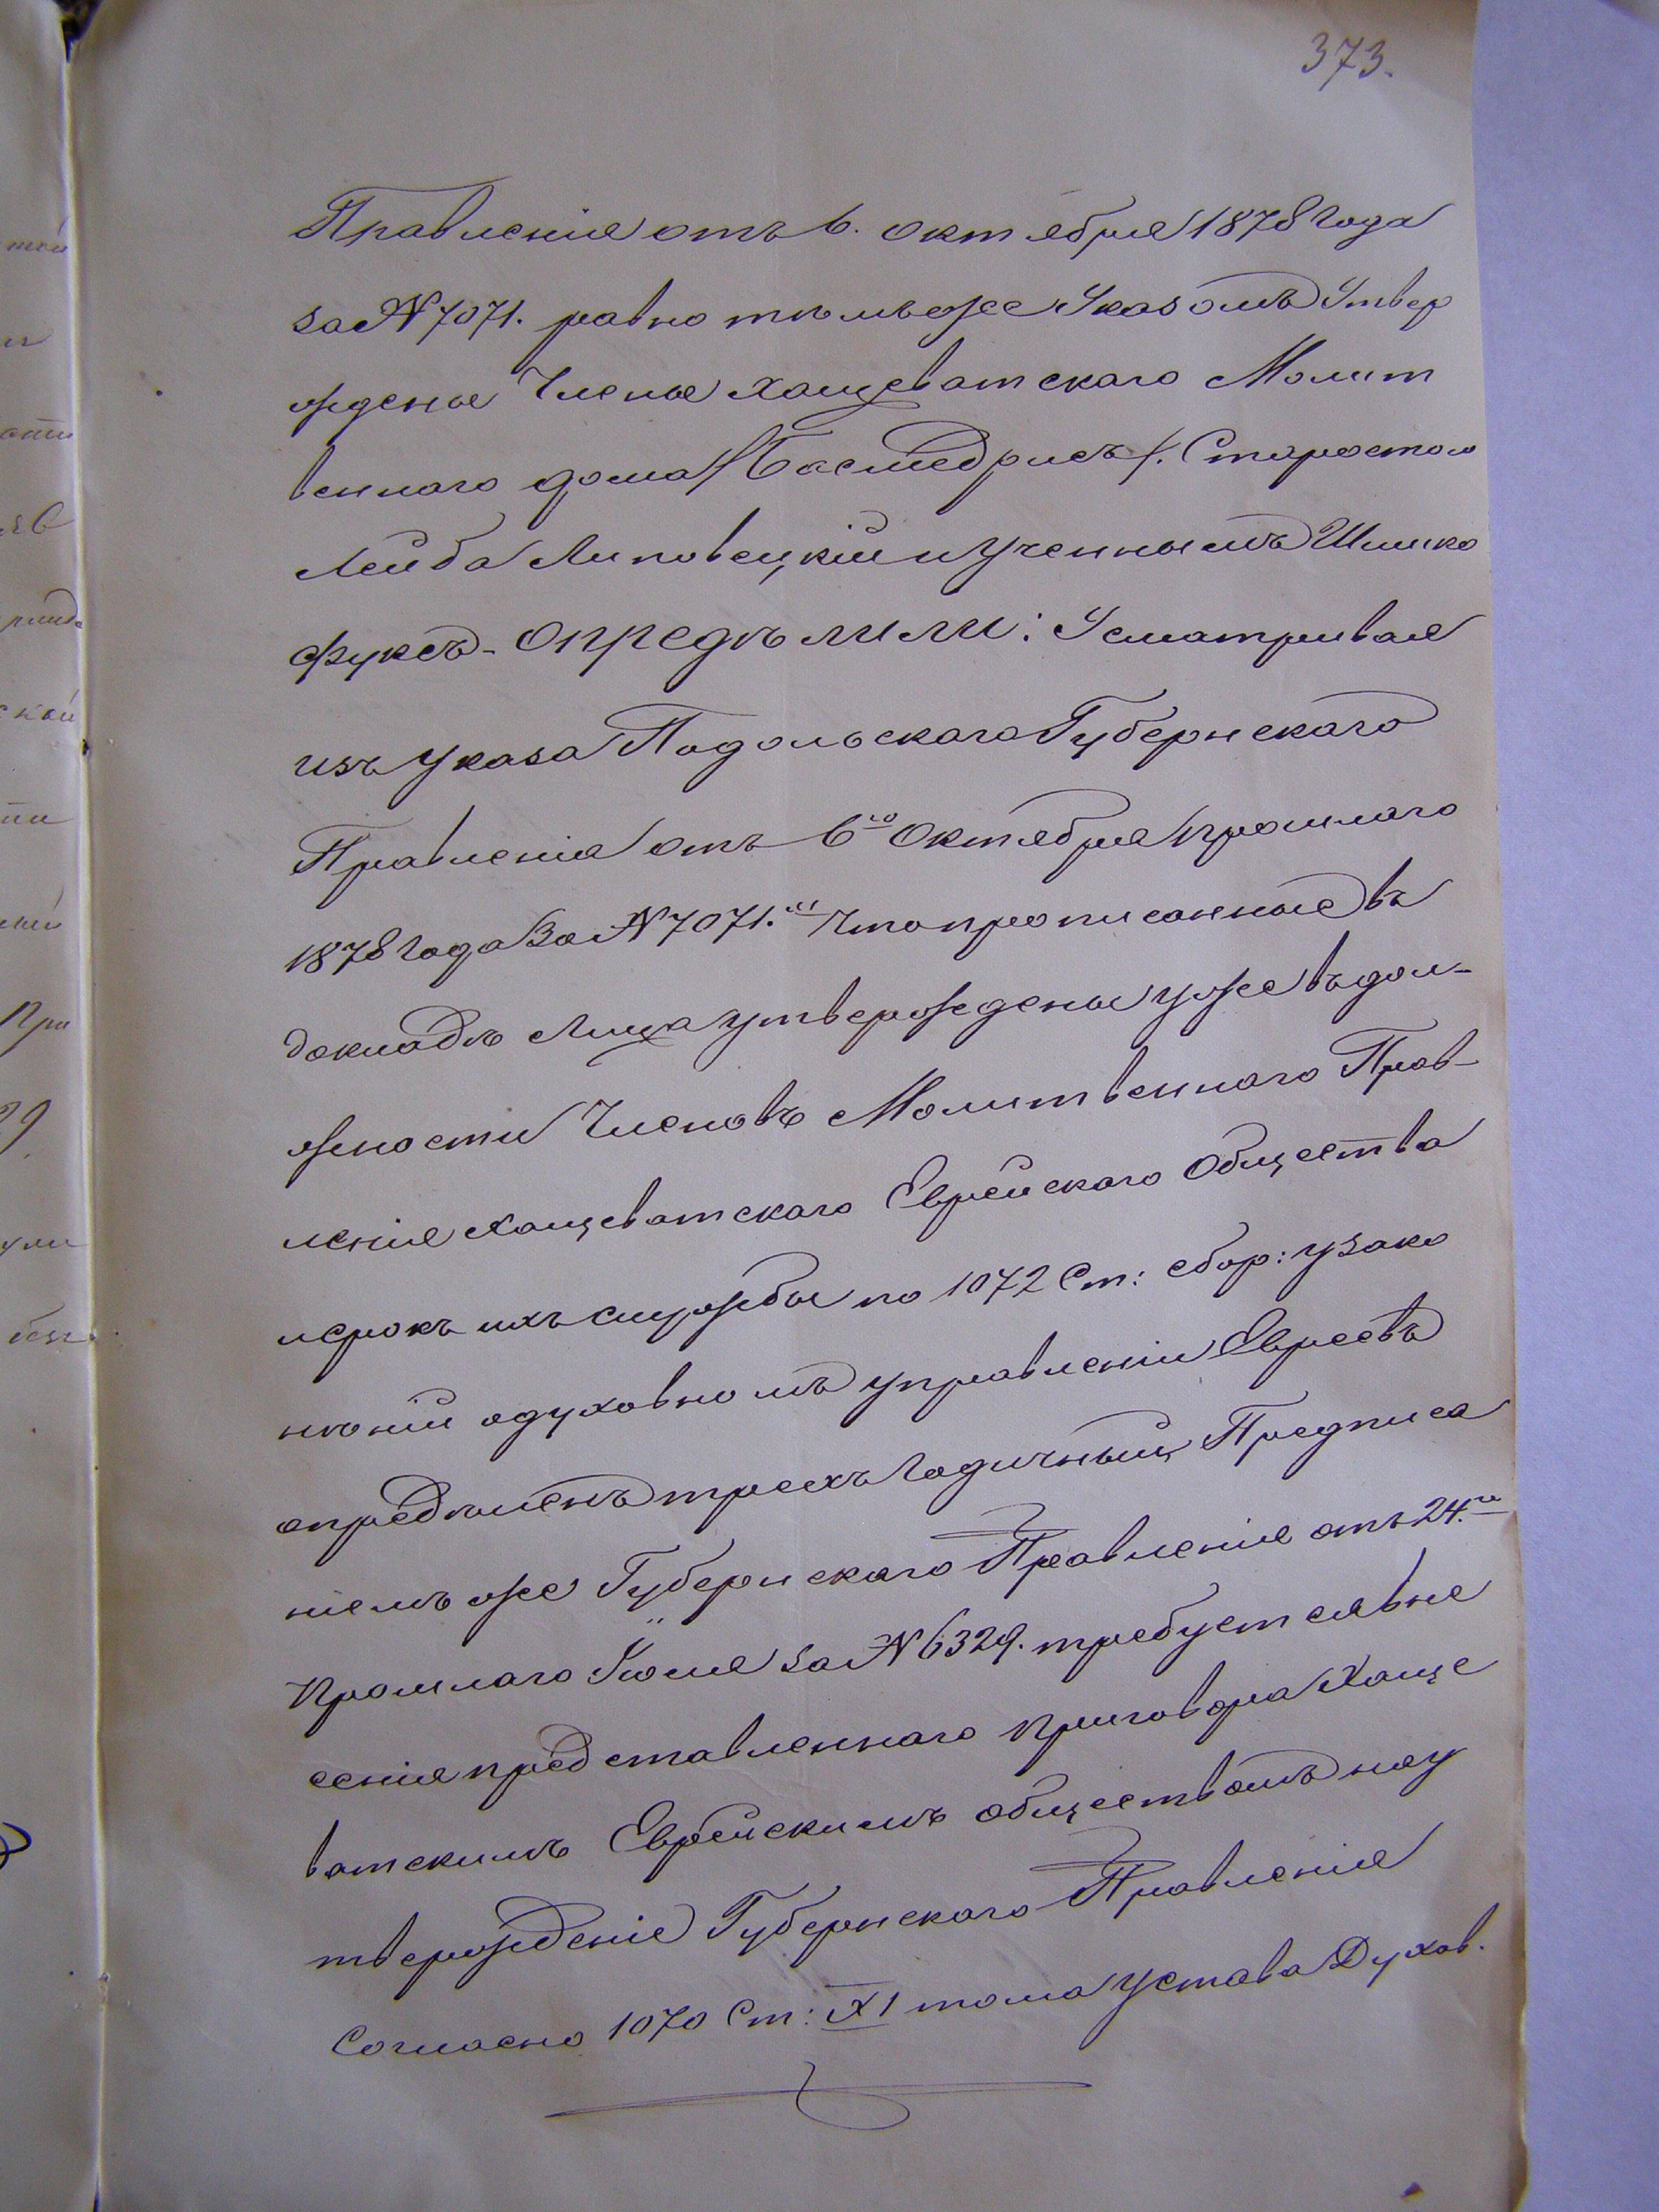 373.
Правленія отъ 6. октября 1878 Года
за № 7071. равно тѣмъ же Указомъ Утвер
ждены Члены Хащеватскаго Молит
веннаго дома /Бесмедрисъ/. Старостою
Лейба Липовецкій и Ученнымъ Шмико
Фуксъ - Опредѣлили: Усматривая
изъ Указа Подольскаго Губернскаго
Правленія отъ 6го Октября прошлаго
1878 Года За № 7071. что прописанные въ
докладѣ Лица утверждены уже въ дол-
жности Членовъ Молитвеннаго Прав-
ленія Хащеватскаго Еврейскаго Общества
и срокъ ихъ службы по 1072 Ст: сбор: узако
неній о духовномъ управленіи Евреевъ
опредѣленъ трехъ Годичный, Предписа
ніемъ же Губернскаго Правленія отъ 24.го
Прошлаго Іюля за № 6329. требуется вне
сенія представленнаго приговора Хаще
ватскимъ Еврейскимъ обществомъ на у
твержденіе Губернскаго Правленія
Согласно 1070 Ст: XI тома Устава Духов.